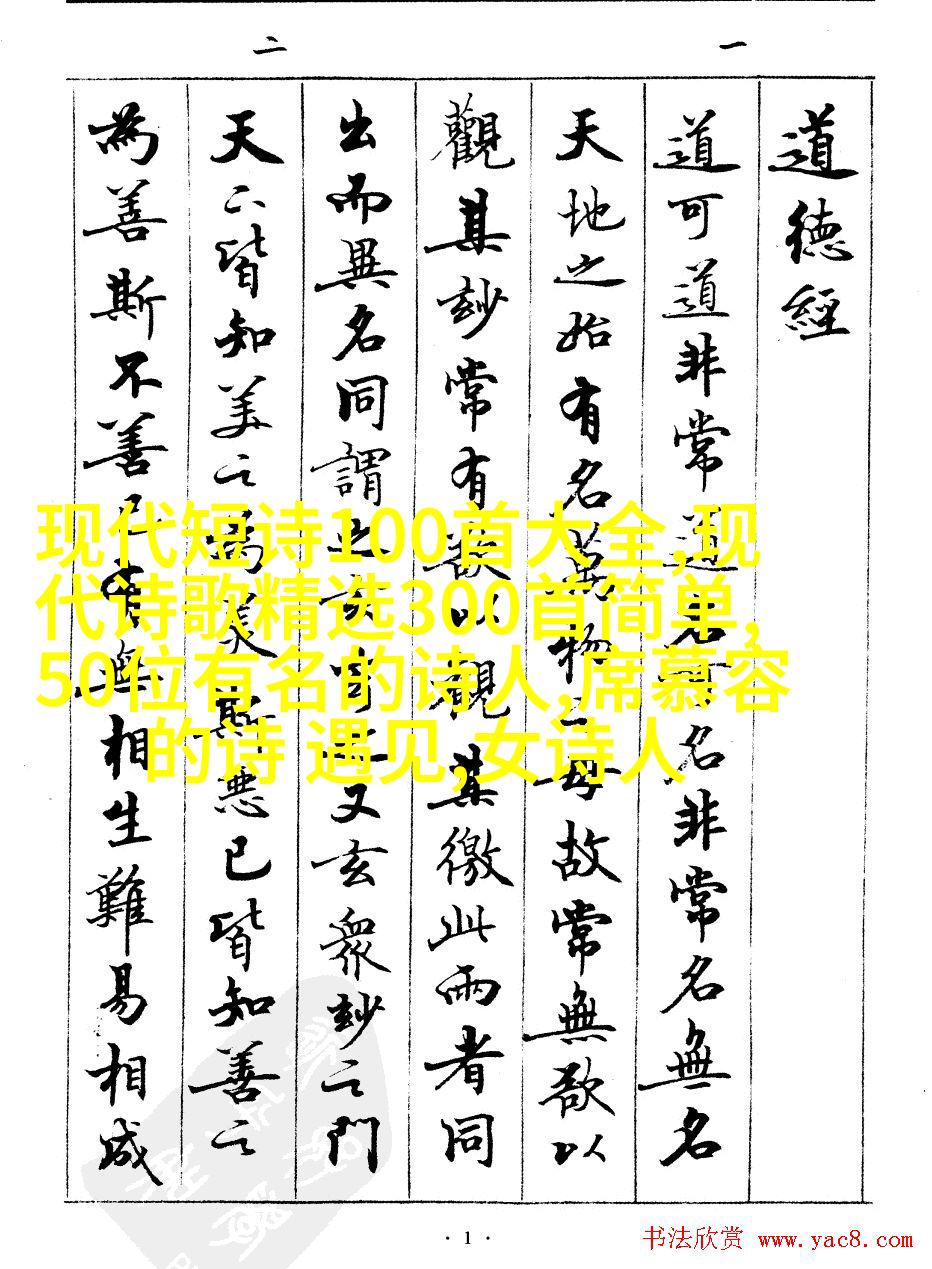 一
二
道德經
道可道非常道名可名非常名無名
天地之始有名萬物之母故常無欲以
觀其玅常有欲以觀其徼此兩者同
出而異名同謂之玄玄之又玄衆玅之門
天下皆知美之為美斯惡已皆知善之
為善斯不善已有無相生難易相成
现代短诗100首大全,现
代诗歌精选300首简单,
50位有名的诗人,席慕容
的诗 遇见,女诗人
· 1 ·
书法欣赏 www.yac8.com